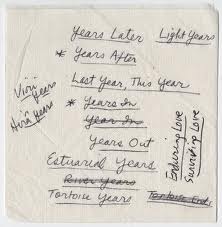 Years Later Light Years
* Years After
Last Year, This Year
* Years In
Year In
Years Out
Estuarial Years
River Years
Tortoise Years Tortoise Ends
Viri Years
Hiri Years
Enduring Love
Surviving Love